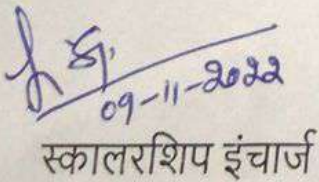 09-11-2022
स्कालरशिप इंचार्ज